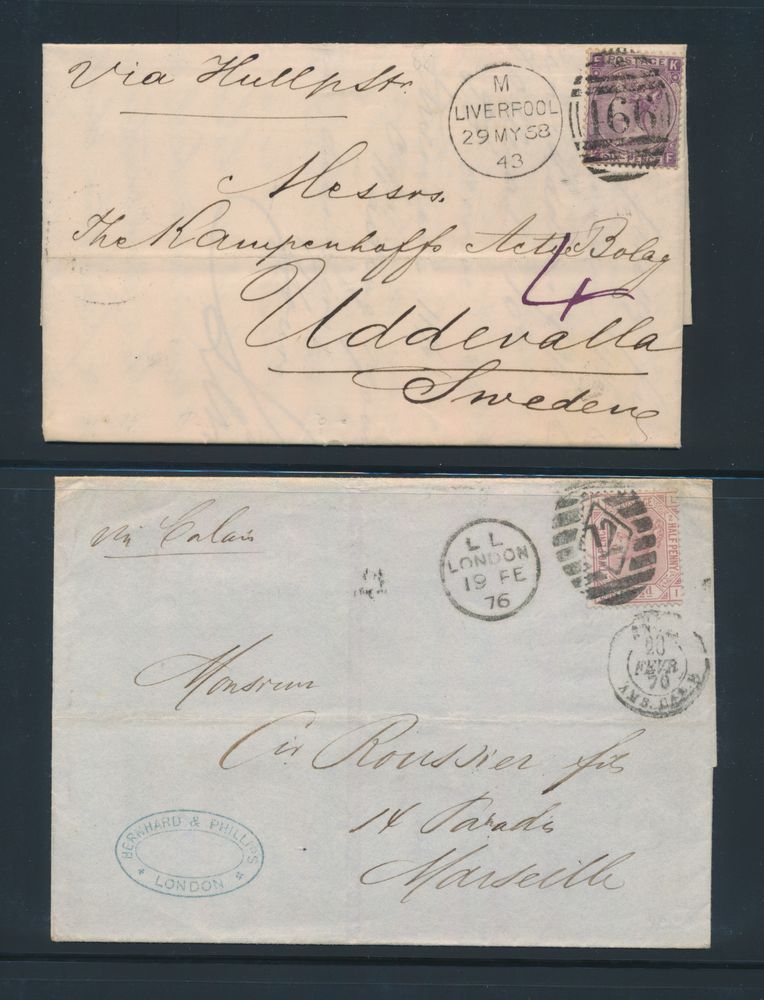 Via Hull p Str.
M
LIVERPOOL
29 MY 68
43
POSTAGE
K
466
F
Messrs.
The Kampenhoffs Actie Bolag
4
Uddevalla
Sweden
via Calais
L L
LONDON
19 FE
76
72
HALFPENNY
I
20
FEVR
76
Monsieur
Roussier fils
14 Paradis
Marseille
BERNHARD & PHILLIPS
LONDON